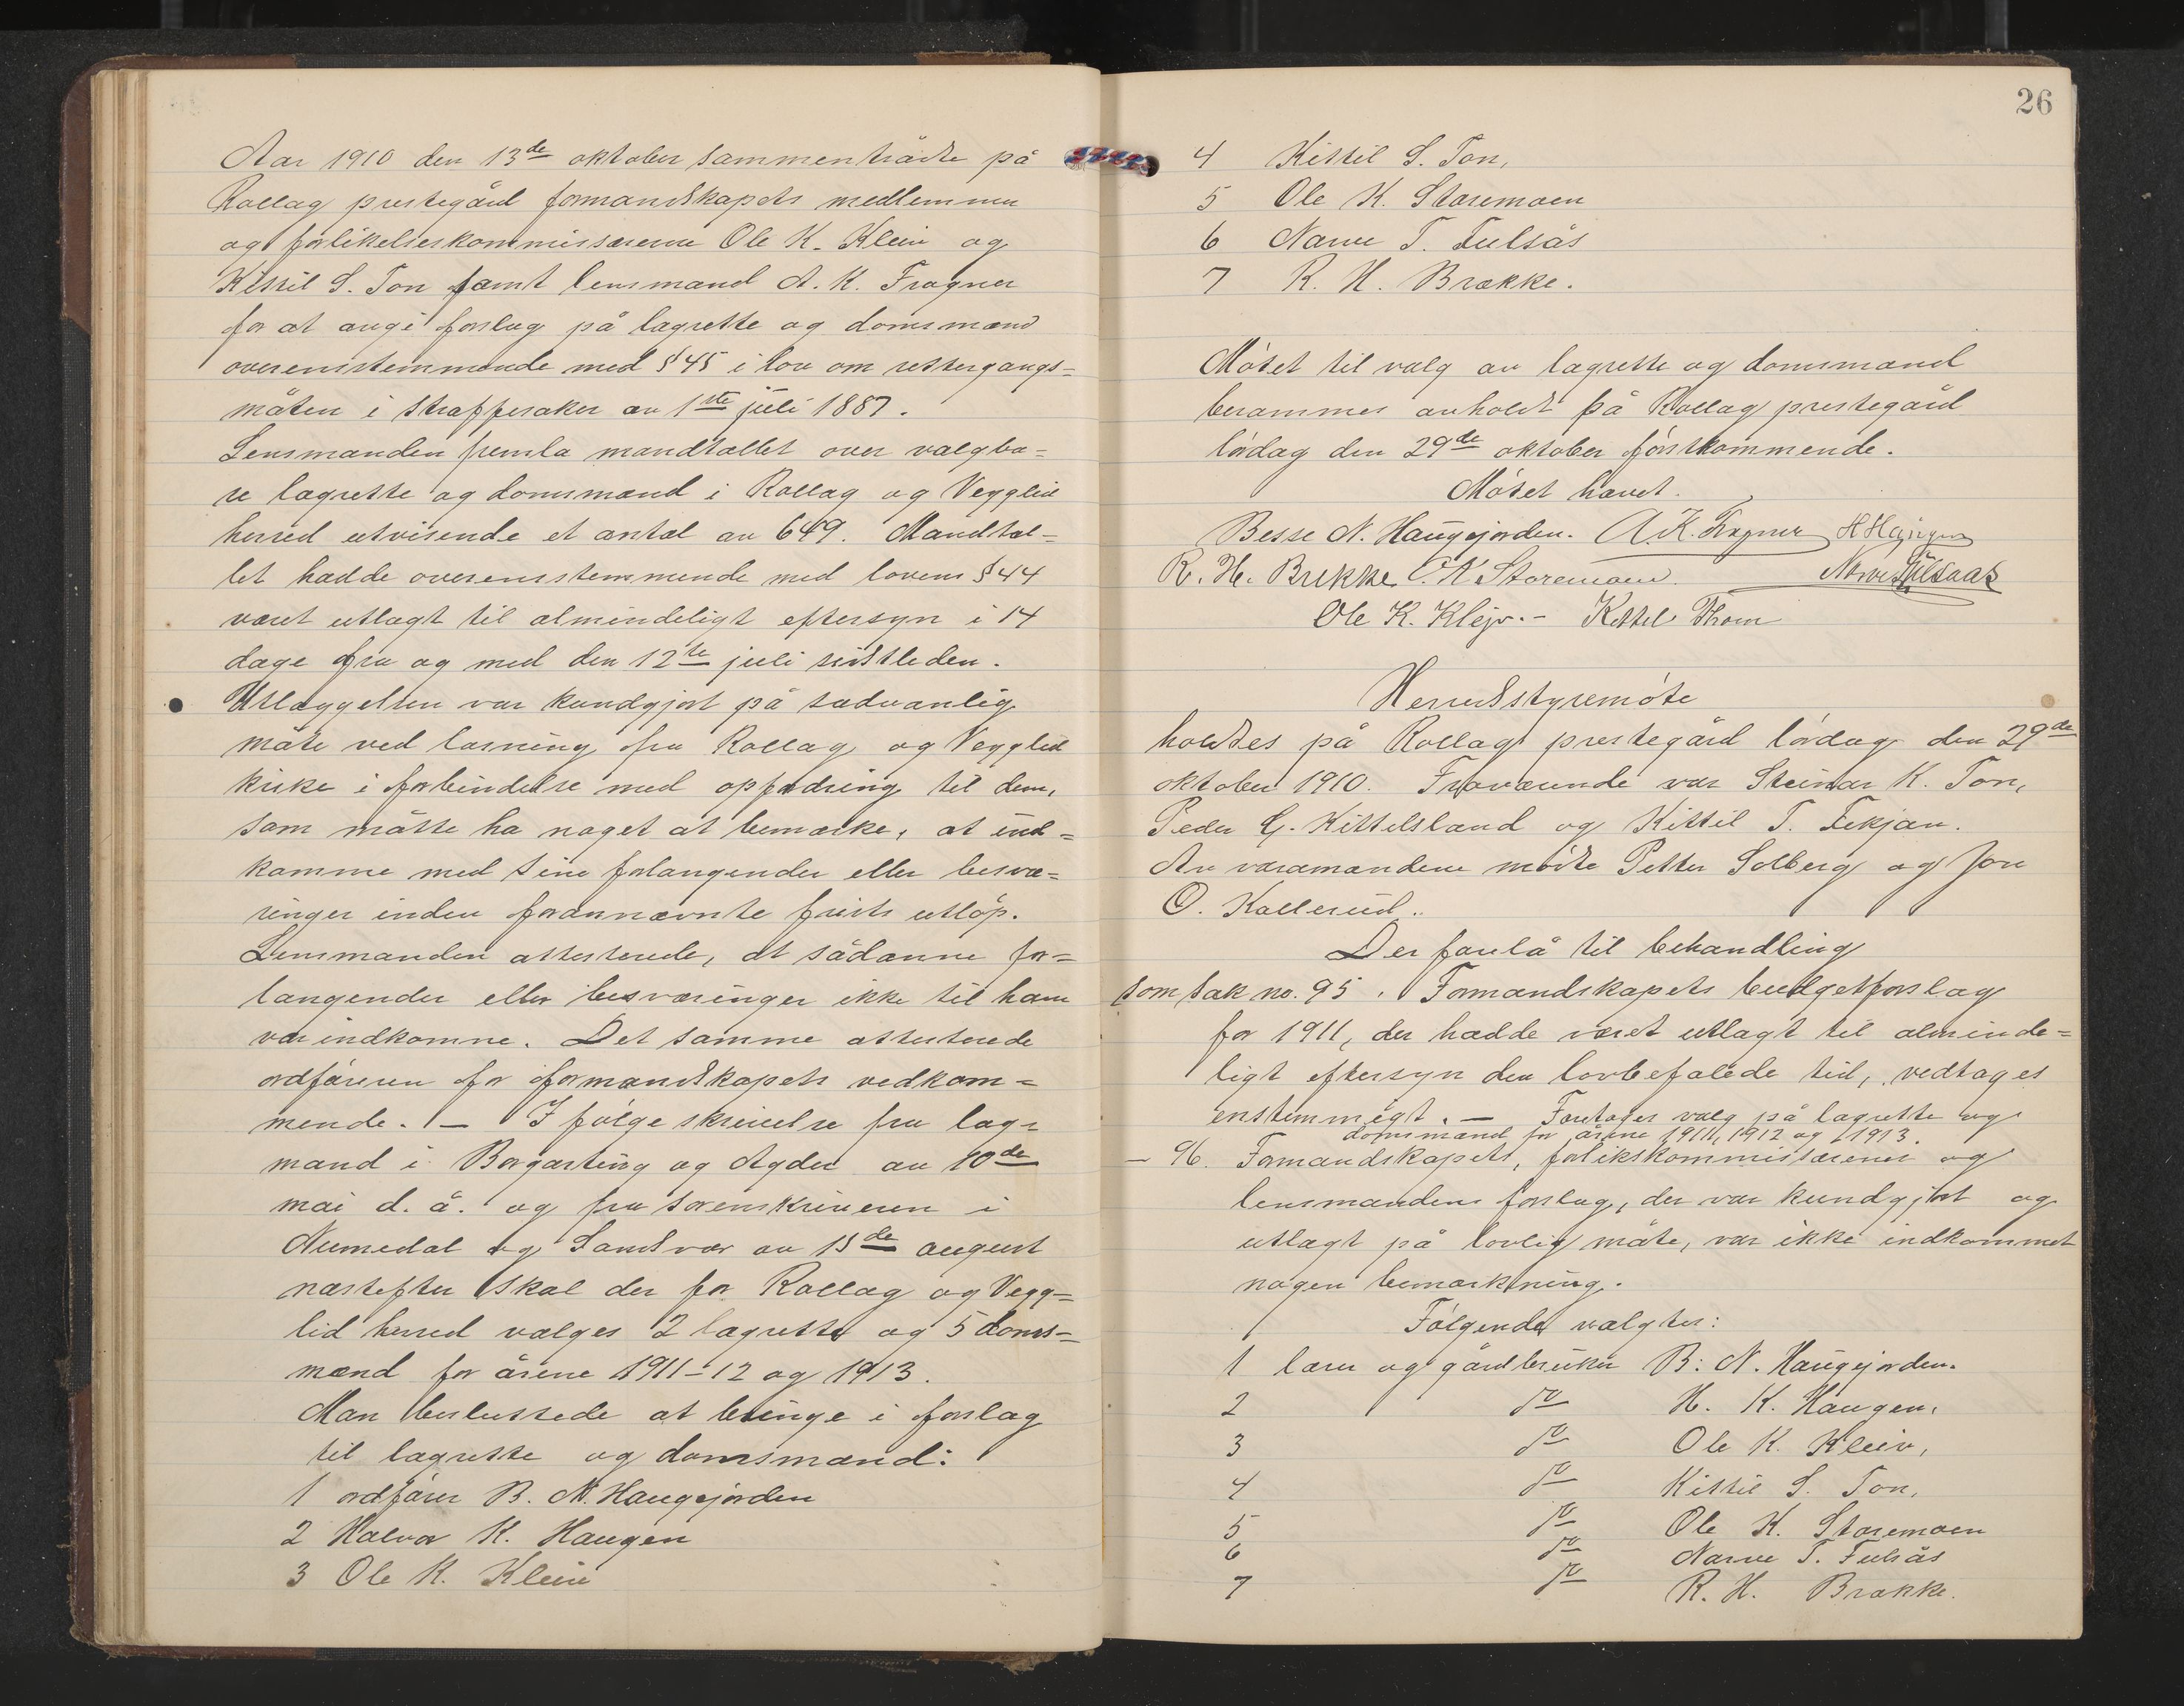 Aar 1910 den 13de oktober sammentrådte på
Rollag prestegård formandskapets medlemmer
og forlikelseskommissærerne Ole K. Kleiv og
Kittil S. Ton samt lensmand A. K. Fragner
for at angi forslag på lagrette og domsmænd
overensstemmende med § 45 i lov om rettergangs=
måten i straffesaker av 1ste juli 1887.
Lensmanden fremla mandtallet over valgba=
re lagrette og domsmænd i Rollag og Vegglid
herred utvisende et antal av 649. Mandtal=
let hadde overensstemmende med lovens § 44
været utlagt til almindeligt eftersyn i 14
dage fra og med den 12te juli sidstleden.
Utlæggelsen var kundgjort på sædvanlig
måte ved læsning fra Rollag og Vegglid
kirke i forbindelse med opfodring til dem,
som måtte ha noget at bemærke, at ind=
komme med sine forlangender eller besvæ=
ringer inden forannævnte frists utløp.
Lensmanden attesterede, at sådanne for=
langender eller besværinger ikke til ham
var indkomne. Det samme attesterede
ordføreren for formandskapets vedkom=
mende. — I følge skrivelse fra lag=
mand i Borgarting og Agder av 10de
mai d. å. og fra sorenskriveren i
Numedal og Sandsvær av 15de august
næstefter skal der for Rollag og Vegg=
lid herred vælges 2 lagrette og 5 doms=
mænd for årene 1911-12 og 1913.
Man besluttede at bringe i forslag
til lagrette og domsmænd:
1 ordfører B. N. Haugejorden
2 Halvor K. Haugen
3 Ole K. Kleiv
26
4 Kittil S. Ton,
5 Ole K. Staremoen
6 Narve T. Fulsås
7 R. H. Brække.
Møtet til valg av lagrette og domsmænd
berammes avholdt på Rollag prestegård
lørdag den 29de oktober førstkommende.
Møtet hævet.
Besse N. Haugejorden. A. K. Fragner H Haugen
R. H. Brekke O. K Staremoen. Narve Fulsaas
Ole K. Klejv.- Kittel Thon
Herredsstyremøte
holdtes på Rollag prestegård lørdag den 29de
oktober 1910. Fraværende var Steinar K. Ton,
Peder G. Kittelsland og Kittil T. Fekjan.
Av varamændene møtte Petter Solberg og Jon
O. Kollerud.
Der forelå til behandling
som sak no. 95. Formandskapets budgetforslag
for 1911, der hadde været utlagt til alminde=
ligt eftersyn den lovbefalede tid, vedtages
enstemmigt. — Foretages valg på lagrette og
domsmænd for årene 1911, 1912 og 1913.
— 96. Formandskapets, forlikskommissærenes og
lensmandens forslag, der var kundgjort og
utlagt på lovlig måte, var ikke indkommet
nogen bemærkning.
Følgende valgtes:
1 lærer og gårdbruker B. N. Haugejorden.
2 do H. K. Haugen,
3 do Ole K. Kleiv,
4 do Kittil S. Ton,
5 do Ole K. Staremoen
6 do Narve T. Fulsås
7 do R. H. Brække.